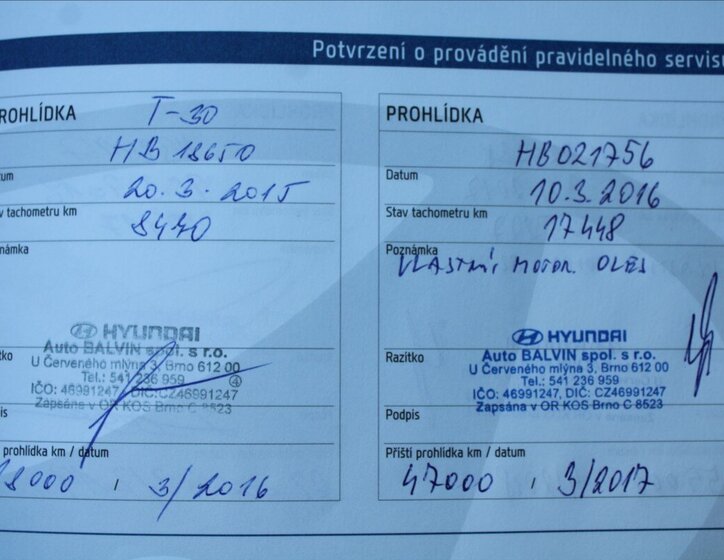 Potvrzení o provádění pravidelného servisu
ROHLÍDKA T-30
HB 18650
tum 20.3.2015
tav tachometru km 8470
námka
HYUNDAI
Auto BALVIN spol. s r.o.
U Červeného mlýna 3, Brno 612 00
Tel.: 541 236 959
4
IČO: 46991247, DIČ: CZ46991247
Zapsána v OR KOS Brno C 8523
ítko
pis
íští prohlídka km / datum
18000 , 3/2016
PROHLÍDKA
HB021756
Datum 10.3.2016
Stav tachometru km 17448
Poznámka
VLASTNÍ MOTOR. OLEJ
HYUNDAI
Auto BALVIN spol. s r.o.
U Červeného mlýna 3, Brno 612 00
Tel.: 541 236 959
IČO: 46991247, DIČ: CZ46991247
Zapsána v OR KOS Brno C 8523
Razítko
Podpis
Příští prohlídka km / datum
47000 , 3/2017